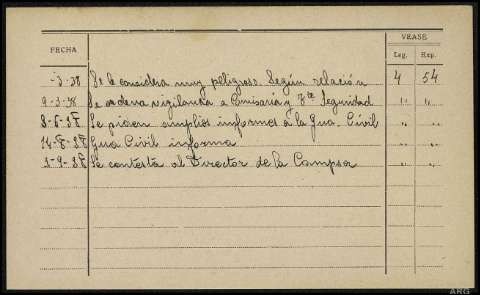 FECHA
VEASE
Leg. Hap.
-3-38 Se le considera muy peligroso. Según relación 4 54
9-3-38 Se ordena vigilancia a Comisaría y Jte Seguridad " "
8-6-38 Se piden amplios informes a la Gua. Civil " "
14-8-38 Gua Civil informa " "
3-9-38 Se contesta al Director de la Campsa " "
ARG